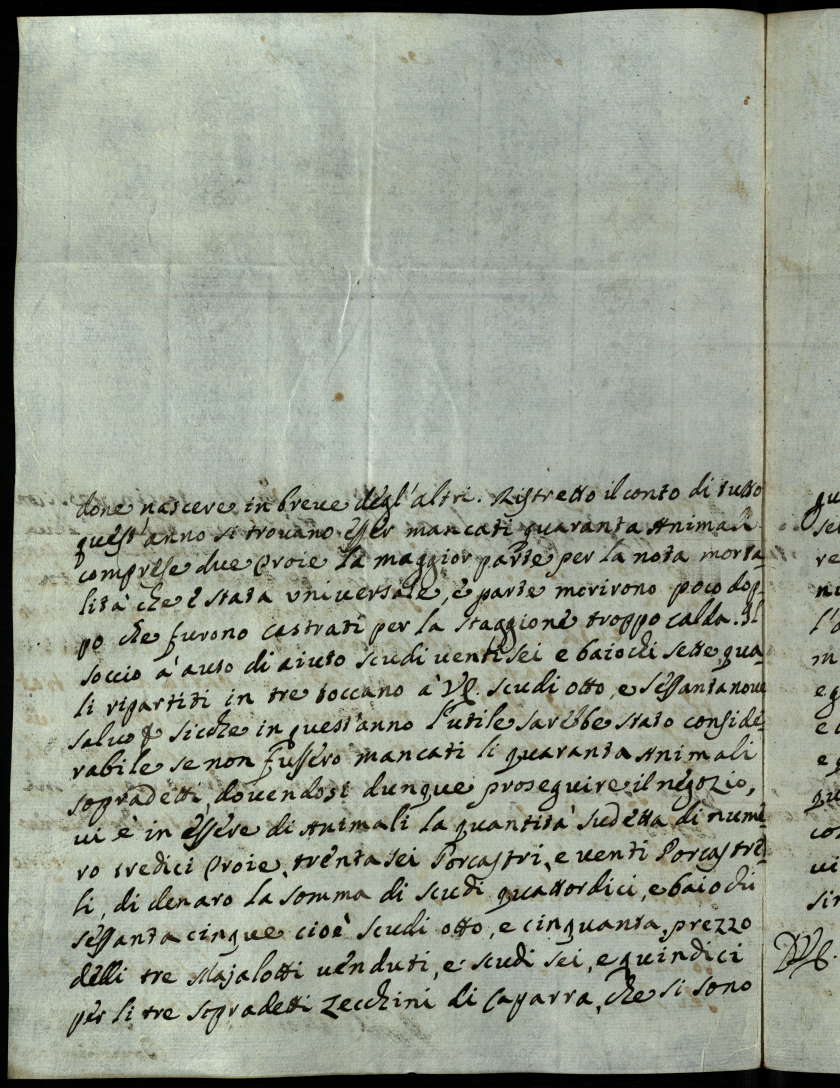 done nascere in breue degl'altri. Ristretto il conto di tutto
quest'anno si trouano esser mancati quaranta Animali
comprese due Troie la maggior parte per la nota morta-
lità che è stata vniuersale, e parte morirono poco dop-
po che furono castrati per la staggione troppo calda. Il
soccio à auto di aiuto scudi uenti sei e baiochi sette qua-
li ripartiti in tre toccano à VS. scudi otto, e sessantanoue
saluo & sicche in quest'anno l'utile sarebbe stato conside-
rabile se non fussero mancati li quaranta Animali
sopradetti, douendosi dunque proseguire il negozio,
ui è in essere di Animali la quantità sudetta di nume-
ro tredici Troie, trenta sei Porcastri, e uenti Porcastrel-
li, di denaro la somma di scudi quattordici, e baiochi
sessanta cinque cioè scudi otto, e cinquanta, prezzo
delli tre Majalotti uenduti, e scudi sei, e quindici
per li tre sopradetti Zecchini di Caparra, che si sono
gu
se
re
nu
l'a
m
eg
e
e
qu
co
ui
sin